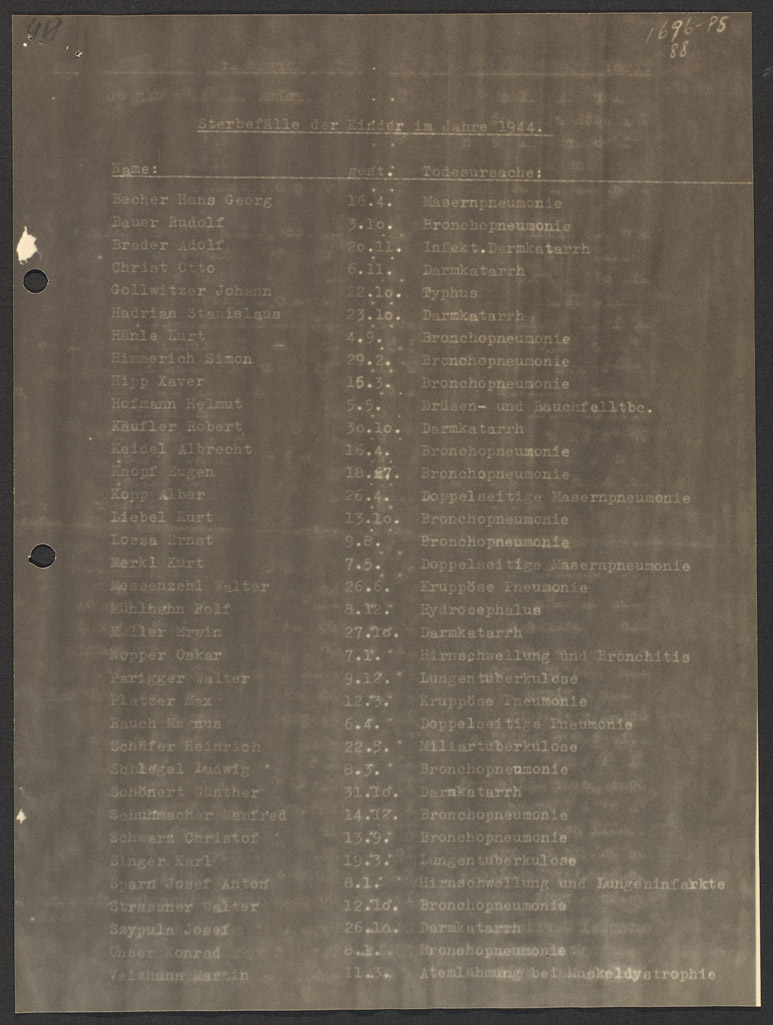 1696-PS
88
Sterbefälle der Kinder im Jahre 1944.
Name: gest. Todesursache:
Becher Hans Georg 16.4. Masernpneumonie
Bauer Rudolf 3.10. Bronchopneumonie
Brader Adolf 20.11. Infekt.Darmkatarrh
Christ Otto 6.11. Darmkatarrh
Gollwitzer Johann 22.10. Typhus
Hadrian Stanislaus 23.10. Darmkatarrh
Hänle Kurt 4.9. Bronchopneumonie
Himmerich Simon 29.2. Bronchopneumonie
Hipp Xaver 16.3. Bronchopneumonie
Hofmann Helmut 5.5. Drüsen- und Bauchfelltbc.
Käufler Robert 30.10. Darmkatarrh
Keidel Albrecht 16.4. Bronchopneumonie
Knopf Eugen 18. Bronchopneumonie
Kopp Alber 26.4. Doppelseitige Masernpneumonie
Liebel Kurt 13.10. Bronchopneumonie
Lossa Ernst 9.8. Bronchopneumonie
Merkl Kurt 7.5. Doppelseitige Masernpneumonie
Messenzehl Walter 26.6. Kruppöse Pneumonie
Mühlhahn Rolf 8.12. Hydrocephalus
Müller Erwin 27.10. Darmkatarrh
Nopper Oskar 7.1. Hirnschwellung und Bronchitis
Parigger Walter 9.12. Lungentuberkulose
Platzer Max 12.3. Kruppöse Pneumonie
Rauch Magnus 6.4. Doppelseitige Pneumonie
Schäfer Heinrich 22.5. Miliartuberkulose
Schlegel Ludwig 8.3. Bronchopneumonie
Schönert Günther 31.10. Darmkatarrh
Schuhmacher Manfred 14.12. Bronchopneumonie
Schwarz Christof 13.9. Bronchopneumonie
Singer Karl 19.3. Lungentuberkulose
Sparn Josef Anton 8.1. Hirnschwellung und Lungeninfarkte
Strassner Walter 12.10. Bronchopneumonie
Szypula Josef 26.10. Darmkatarrh
Unser Konrad 8.1. Bronchopneumonie
Veizhann Martin 11.3. Atemlähmung bei Muskeldystrophie